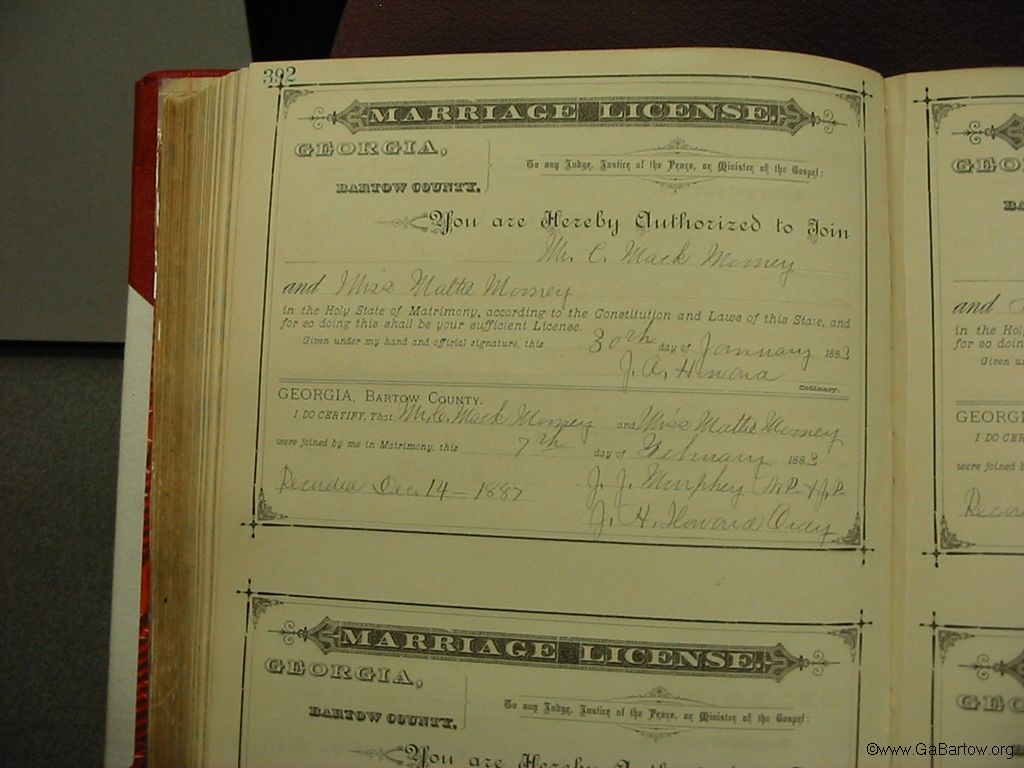 392
MARRIAGE LICENSE.
GEORGIA,
BARTOW COUNTY.
To any Judge, Justice of the Peace, or Minister of the Gospel:
You are Hereby Authorized to Join
Mr. C. Mack Morney
and Miss Mattie Morney
in the Holy State of Matrimony, according to the Constitution and Laws of this State, and
for so doing this shall be your sufficient License.
Given under my hand and official signature, this 30th day of January 1883
J. A. Howard
Ordinary.
GEORGIA, BARTOW COUNTY.
I DO CERTIFY, That Mr. C. Mack Morney and Miss Mattie Morney
were joined by me in Matrimony, this 7th day of February 1883
J. J. Murphey N.P. & J.P.
Recorded Dec. 14 - 1887
J. H. Howard Ordy
MARRIAGE LICENSE.
GEORGIA,
BARTOW COUNTY.
To any Judge, Justice of the Peace, or Minister of the Gospel:
You are Hereby
GEO
BA
and
in the Hol
for so doin
Given u
GEORGI
I DO CER
were joined b
Recor
GEO
©www.GaBartow.org